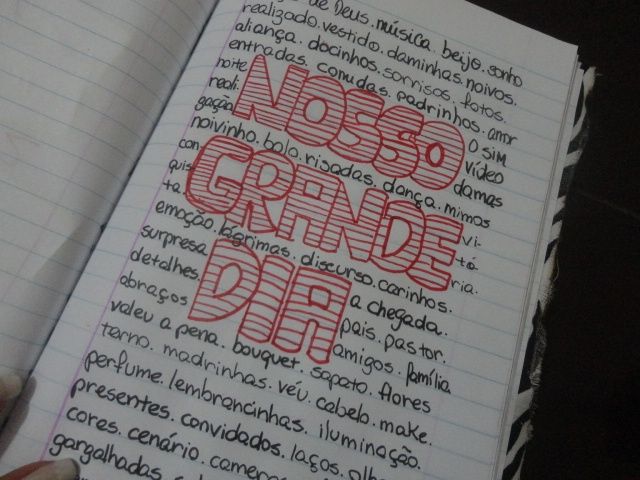 de Deus. música. beijo. sonho
realizado. vestido. daminhas. noivos.
aliança. docinhos. sorrisos. fotos.
entradas. comidas. padrinhos. amor
noite NOSSO O SIM
reali. vídeo
gação damas
noivinho. bolo. risadas. dança. mimos
con GRANDE vi
quis tó
ta. ria.
emoção. lágrimas. discurso. carinhos.
surpresa DIA a chegada.
detalhes pais. pastor.
abraços amigos. família
valeu a pena. bouquet. sapato. flores
terno. madrinhas. véu. cabelo. make.
perfume. lembrancinhas. iluminação.
presentes. convidados. laços.
cores. cenário.
gargalhadas